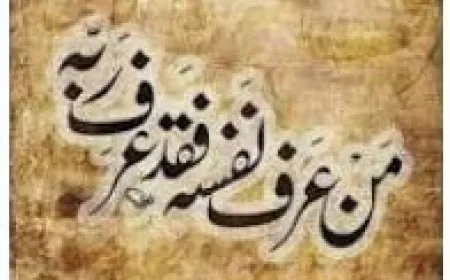 مَنْ عَرَفَ نَفْسَه فَقَدْ عَرَفَ رَبَّه